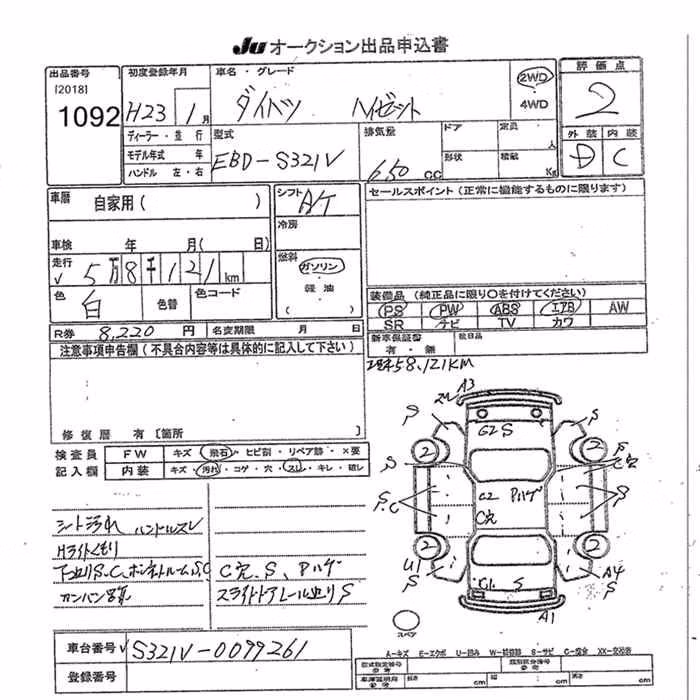 JU オークション出品申込書
出品番号
[2018]
1092
初度登録年月
H23 1月
車名・グレード
ダイハツ ハイゼット
2WD
4WD
評価点
2
外装 内装
D C
ディーラー・並行
モデル年式 年
ハンドル 左・右
型式
EBD-S321V
排気量
650 cc
ドア
形状
定員 人
積載 Kg
車歴
自家用( )
車検 年 月( 日)
走行
√ 5万8千121km
色
白
色替
色コード
シフト
A/T
冷房
燃料
ガソリン
軽油
( )
セールスポイント(正常に機能するものに限ります)
装備品(純正品に限り○を付けてください)
PS PW ABS エアB AW
SR ナビ TV カワ
R券 8,220円 名変期限 月 日
新車保証書
有・無
欠品
注意事項申告欄(不具合内容等は具体的に記入して下さい)
58,121KM
修復歴 有[箇所 ]
検査員
記入欄
FW キズ・飛石・ヒビ割・リペア跡・×要
内装 キズ・汚れ・コゲ・穴・スレ・キレ・破レ
シート汚れ ハンドルスレ
Hライトくもり
下廻りS.C、ボンネットルームS,C
C穴、S、Pハゲ
スライドドアレール廻りS
A3
G2 S
S
S
2
2
S
S
C穴
C2 Pハゲ
C穴
S.C
S
2
2
U1
S
A4
S
G1 S
A1
スペア
車台番号 √ S321V-0099261
登録番号
A-キズ E-エクボ U-凹み W-補修跡 S-サビ C-腐食 XX-交換済
型式指定番号
参考
類別区分番号
参考
車庫証明用
参考
長さ cm
幅 cm
高さ cm